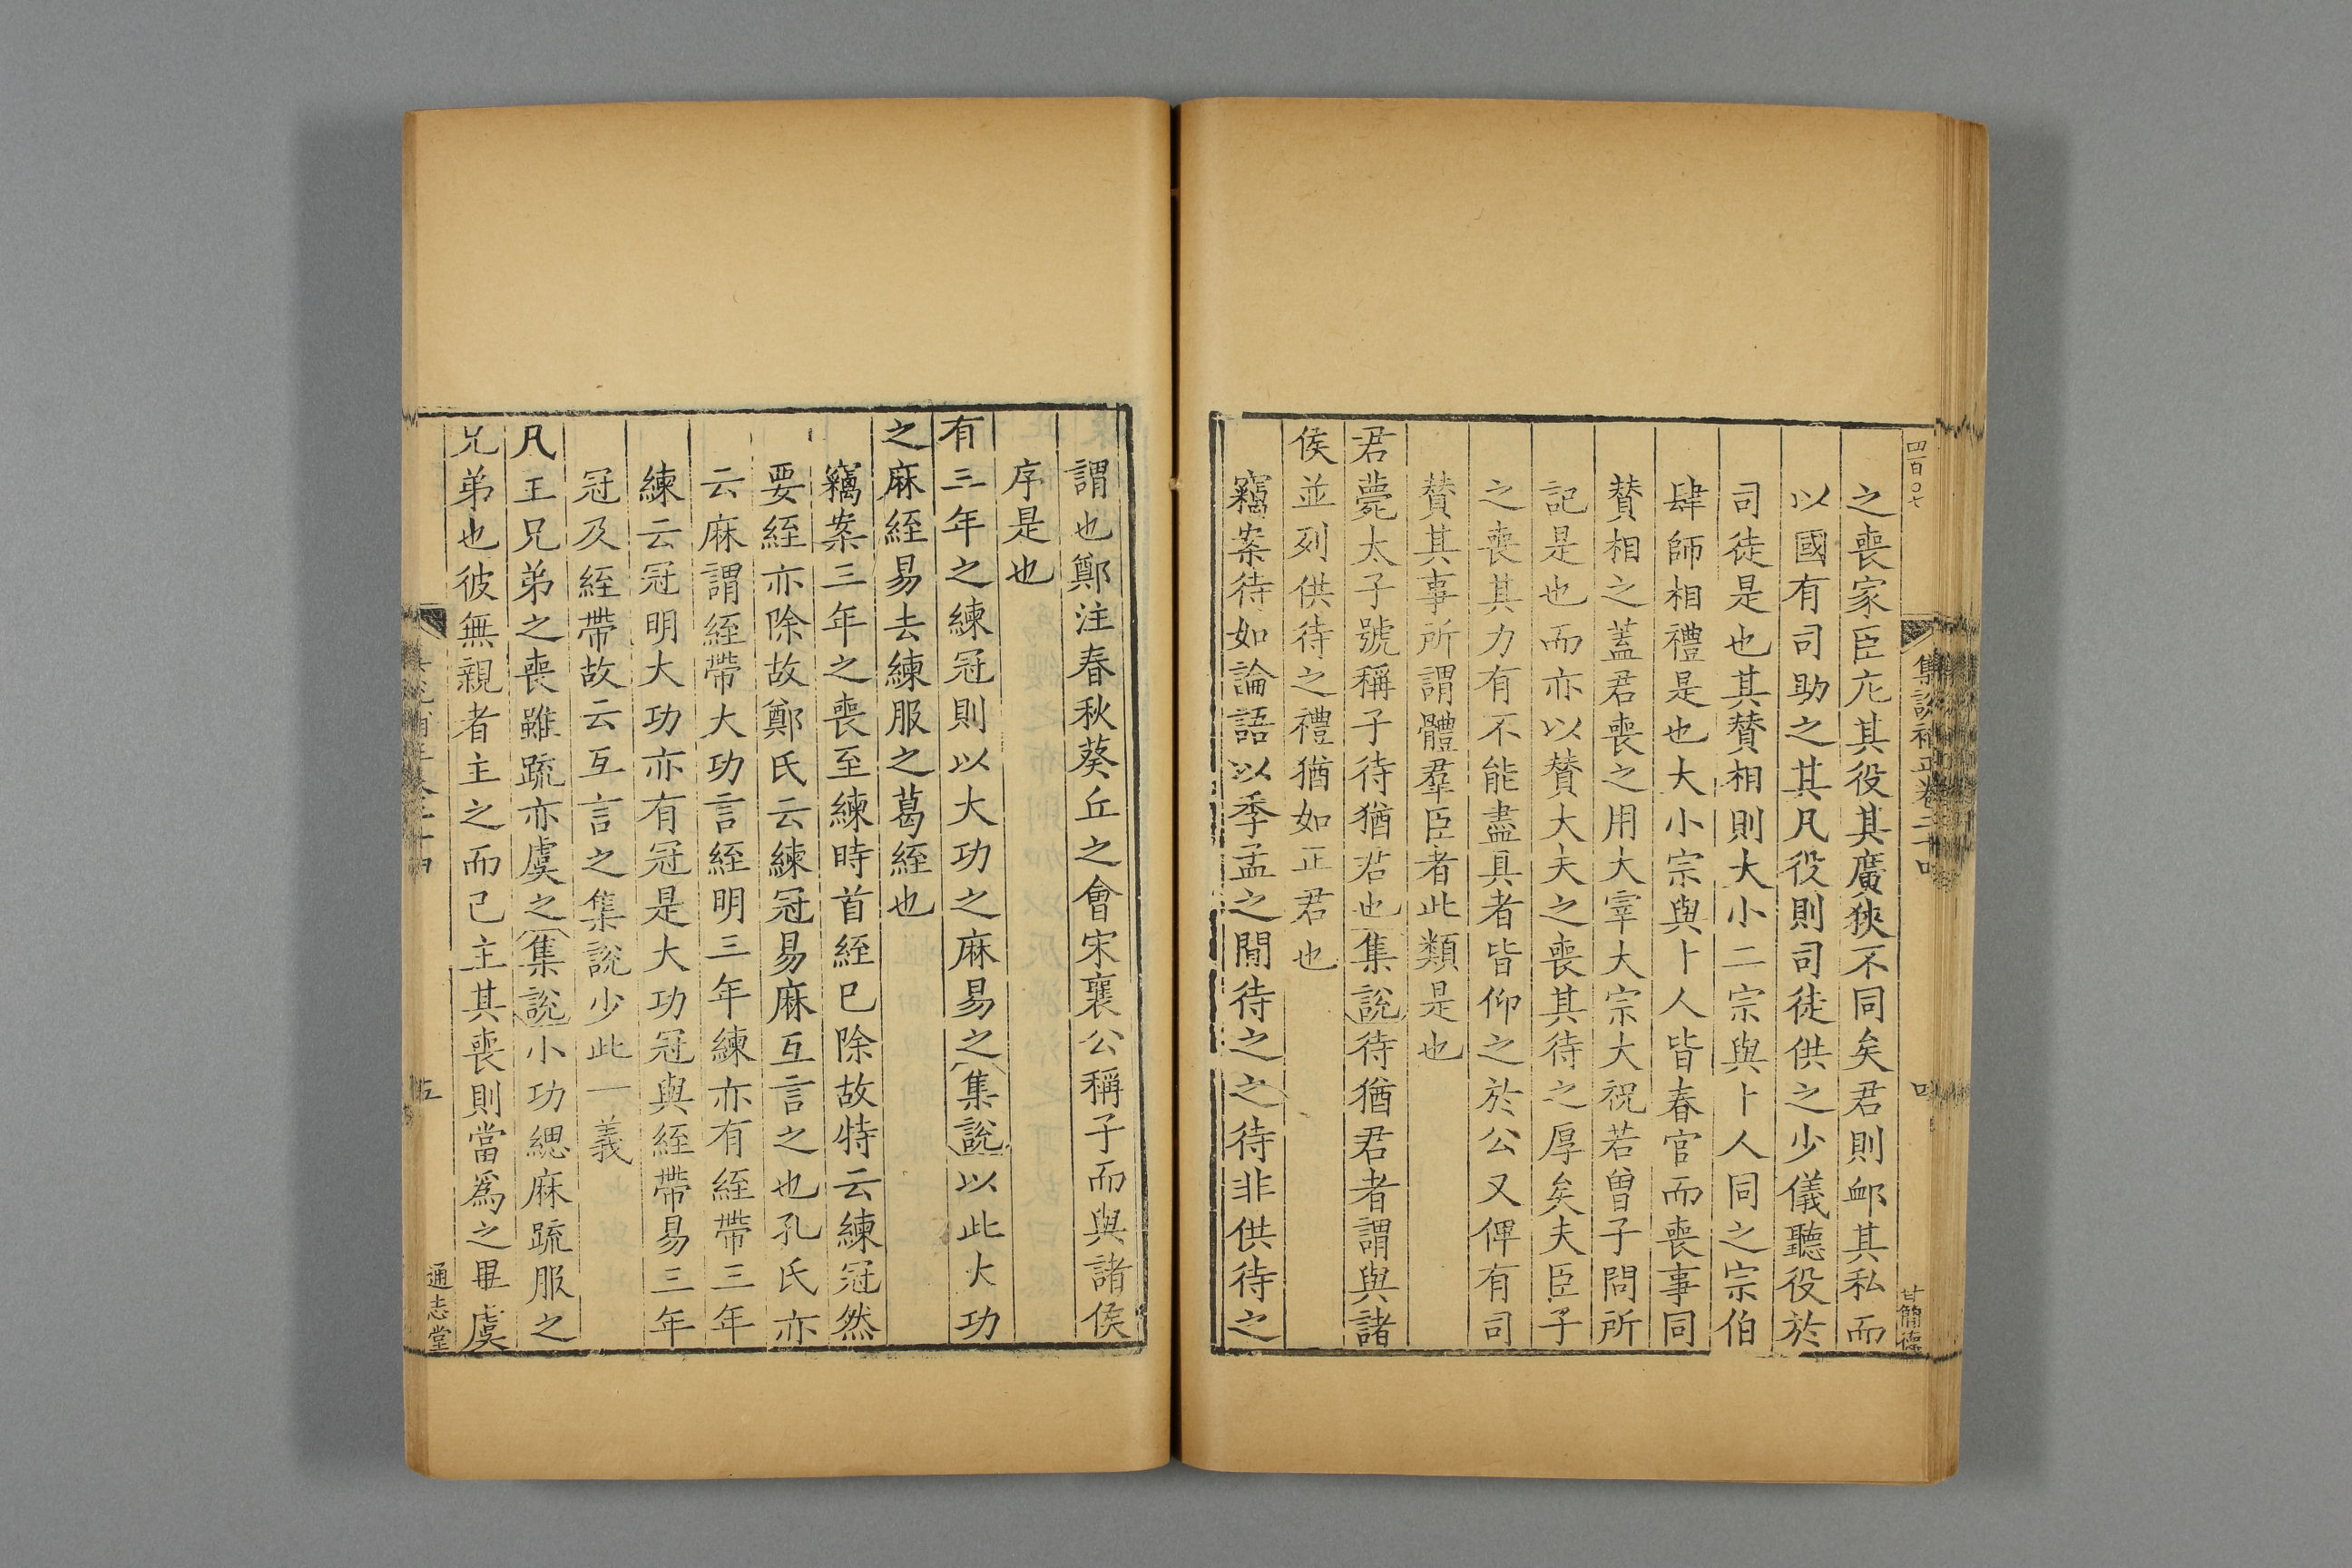 四百〇七
集說補正卷二十四
四
甘簡德
之喪家臣庀其役其廣狹不同矣君則䘏其私而
以國有司助之其凡役則司徒供之少儀聽役於
司徒是也其贊相則大小二宗與卜人同之宗伯
肆師相禮是也大小宗與卜人皆春官而喪事同
贊相之蓋君喪之用大宰大宗大祝若曽子問所
記是也而亦以贊大夫之喪其待之厚矣夫臣子
之喪其力有不能盡具者皆仰之於公又俾有司
贊其事所謂體羣臣者此類是也
君薨太子號稱子待猶君也集說待猶君者謂與諸
侯並列供待之禮猶如正君也
竊案待如論語以季孟之閒待之之待非供待之
謂也鄭注春秋葵丘之會宋襄公稱子而與諸侯
序是也
有三年之練冠則以大功之麻易之集說以此大功
之麻絰易去練服之葛絰也
竊案三年之喪至練時首絰已除故特云練冠然
要絰亦除故鄭氏云練冠易麻互言之也孔氏亦
云麻謂絰帶大功言絰明三年練亦有絰帶三年
練云冠明大功亦有冠是大功冠與絰帶易三年
冠及絰帶故云互言之集說少此一義
凡主兄弟之喪雖疏亦虞之集說小功緦麻疏服之
兄弟也彼無親者主之而己主其喪則當爲之畢虞
五
通志堂